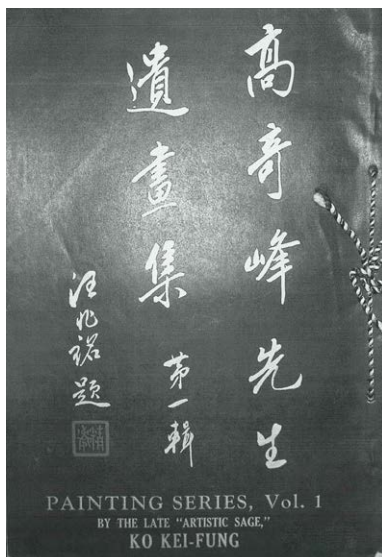 高奇峰先生
遺畫集 第一輯
汪兆銘題
PAINTING SERIES, Vol. 1
BY THE LATE “ARTISTIC SAGE,”
KO KEI-FUNG